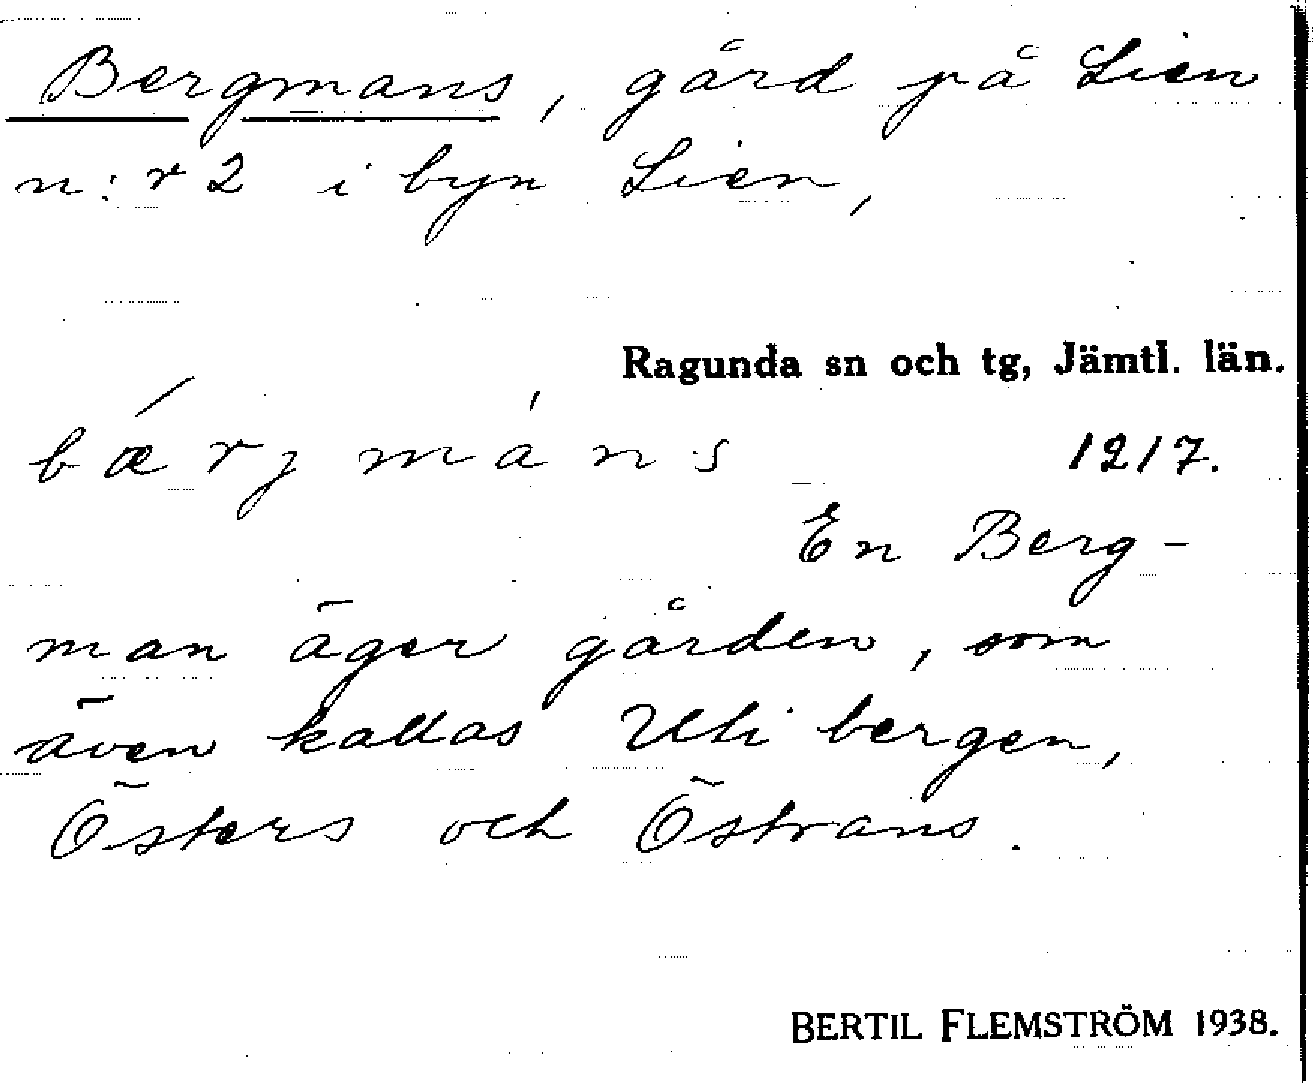 Bergmans, gård på Lien
n:r 2 i byn Lien,
Ragunda sn och tg, Jämtl. län.
bǽrjmáns 1217.
En Berg-
man äger gården, som
även kallas Uti bergen,
Östers och Östrans.
BERTIL FLEMSTRÖM 1938.